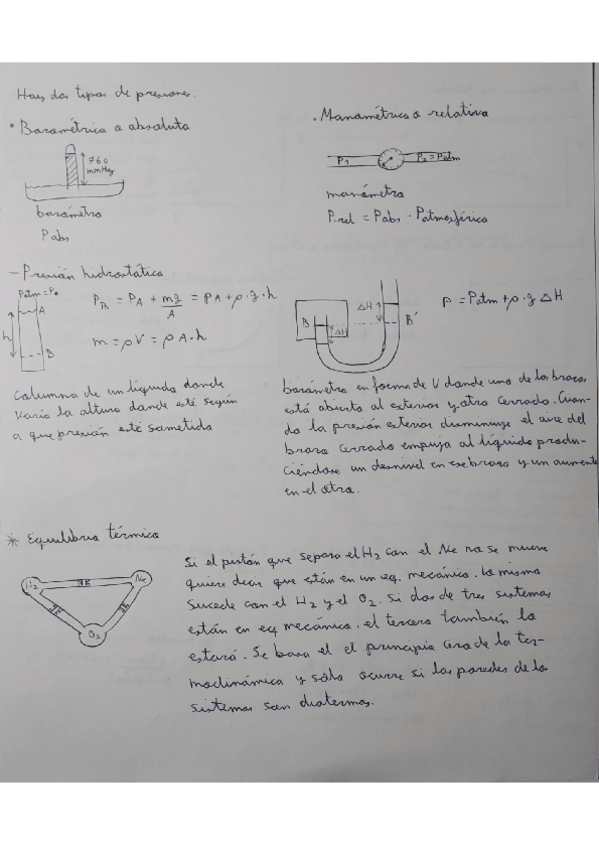 Hay dos tipos de presiones.
• Barométrica o absoluta
760
mmHg
barómetro
Pabs
• Manométrica o relativa
P1
P2 = Patm
manómetro
Prel = Pabs - Patmosférica
- Presión hidrostática
Patm = Po
A
h
B
PB = PA + mg/A = PA + ρ·g·h
m = ρV = ρA·h
columna de un líquido donde
varía la altura donde esté según
a que presión esté sometido
ΔH
B
ΔH
B'
P = Patm + ρ·g ΔH
barómetro en forma de V donde uno de los brazos
está abierto al exterior y otro cerrado. Cuan-
do la presión exterior disminuye el aire del
brazo cerrado empuja al líquido produ-
ciéndose un desnivel en ese brazo y un aumento
en el otro.
* Equilibrio térmico
H2
Ne
O2
Si el pistón que separa el H2 con el Ne no se mueve
quiere decir que están en un eq. mecánico. Lo mismo
sucede con el H2 y el O2. Si dos de tres sistemas
están en eq mecánico, el tercero también lo
estará. Se basa el el principio cero de la ter-
modinámica y sólo ocurre si las paredes de lo
sistemas son diatermos.